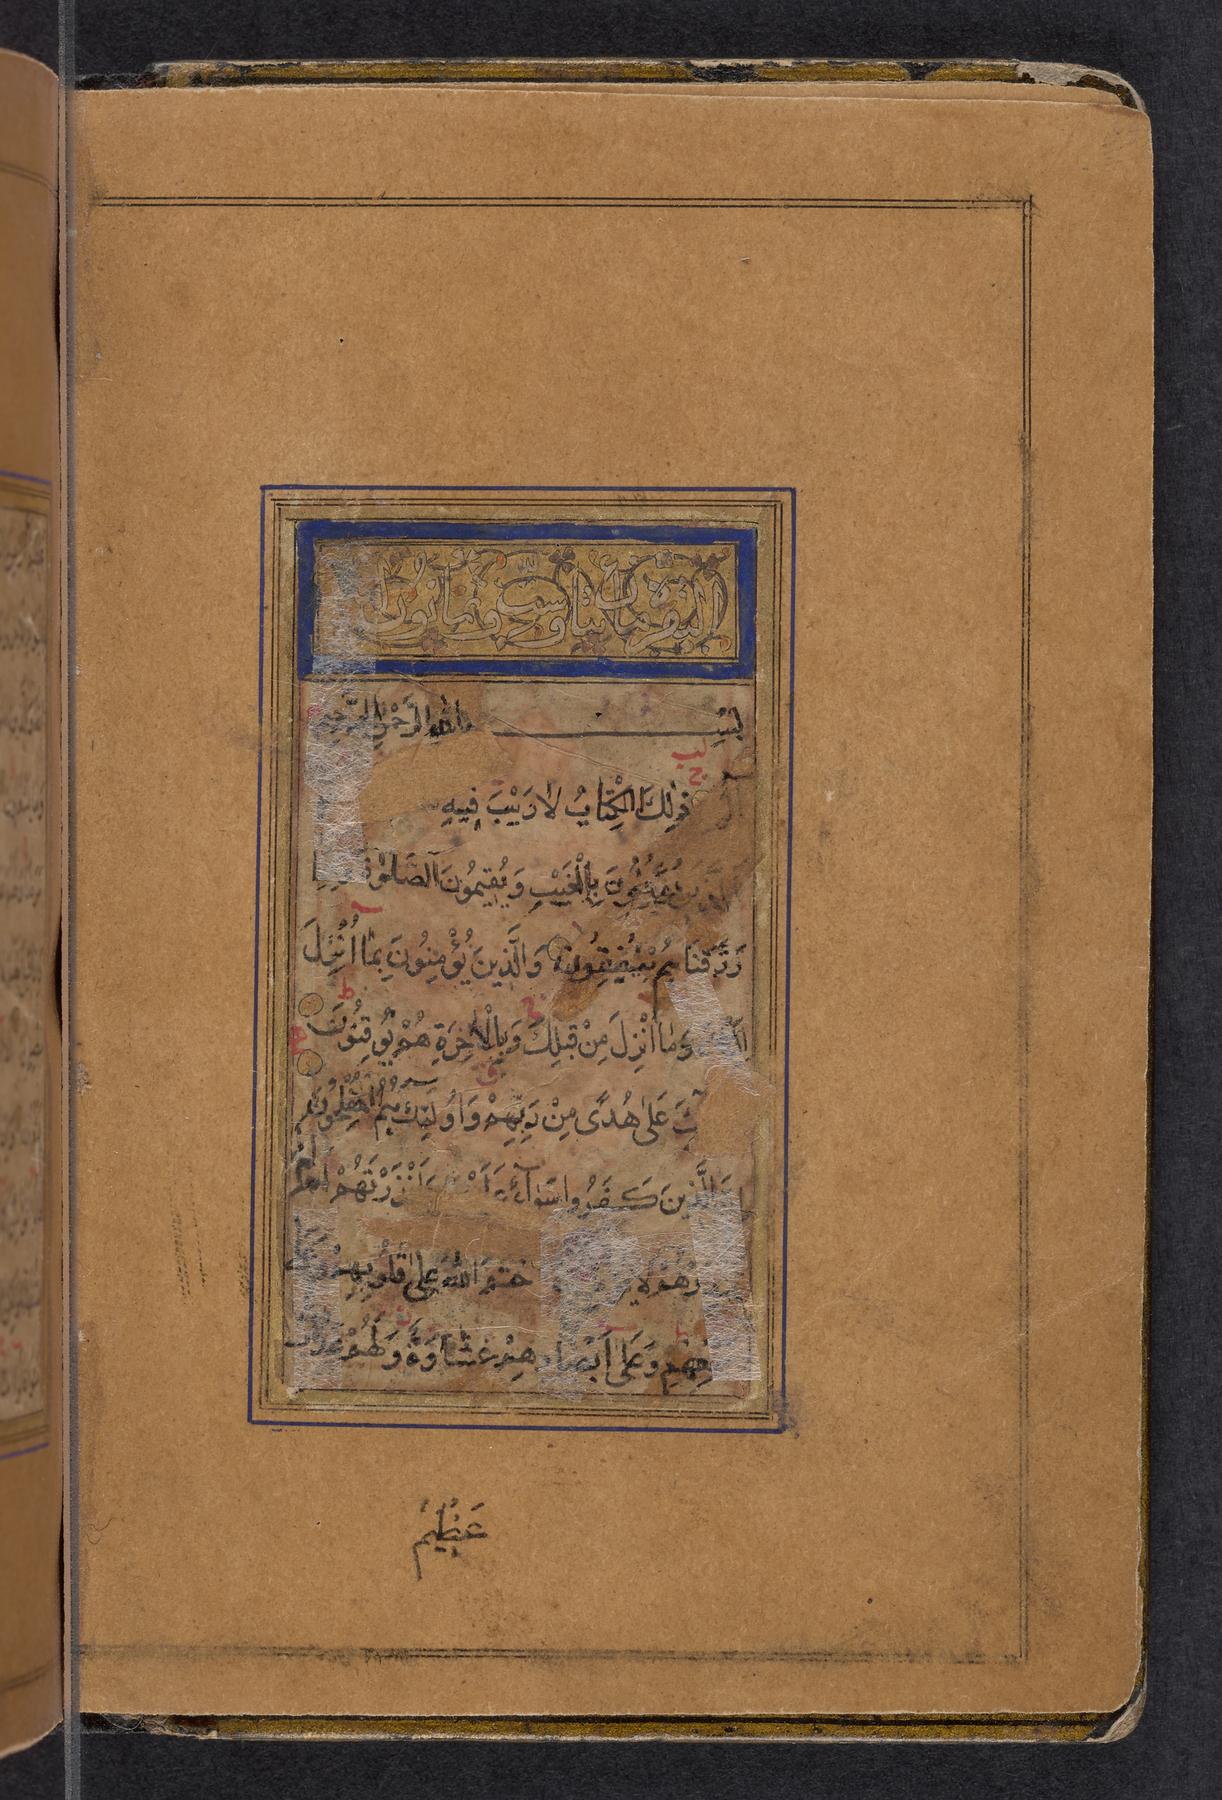 البقرة مائتان وست وثمانون
بِسْمِ اللهِ الرَّحْمٰنِ الرَّحِيمِ
ذٰلِكَ الْكِتَابُ لَا رَيْبَ فِيهِ
يُؤْمِنُونَ بِالْغَيْبِ وَيُقِيمُونَ الصَّلٰوةَ
رَزَقْنَاهُمْ يُنْفِقُونَ وَالَّذِينَ يُؤْمِنُونَ بِمَا أُنْزِلَ
وَمَا أُنْزِلَ مِنْ قَبْلِكَ وَبِالْاٰخِرَةِ هُمْ يُوقِنُونَ
عَلٰى هُدًى مِنْ رَبِّهِمْ وَاُولٰئِكَ هُمُ الْمُفْلِحُونَ
الَّذِينَ كَفَرُوا سَوَآءٌ ءَاَنْذَرْتَهُمْ اَمْ لَمْ
خَتَمَ اللهُ عَلٰى قُلُوبِهِمْ وَعَلٰى
وَعَلٰى اَبْصَارِهِمْ غِشَاوَةٌ وَلَهُمْ عَذَابٌ
عَظِيمٌ